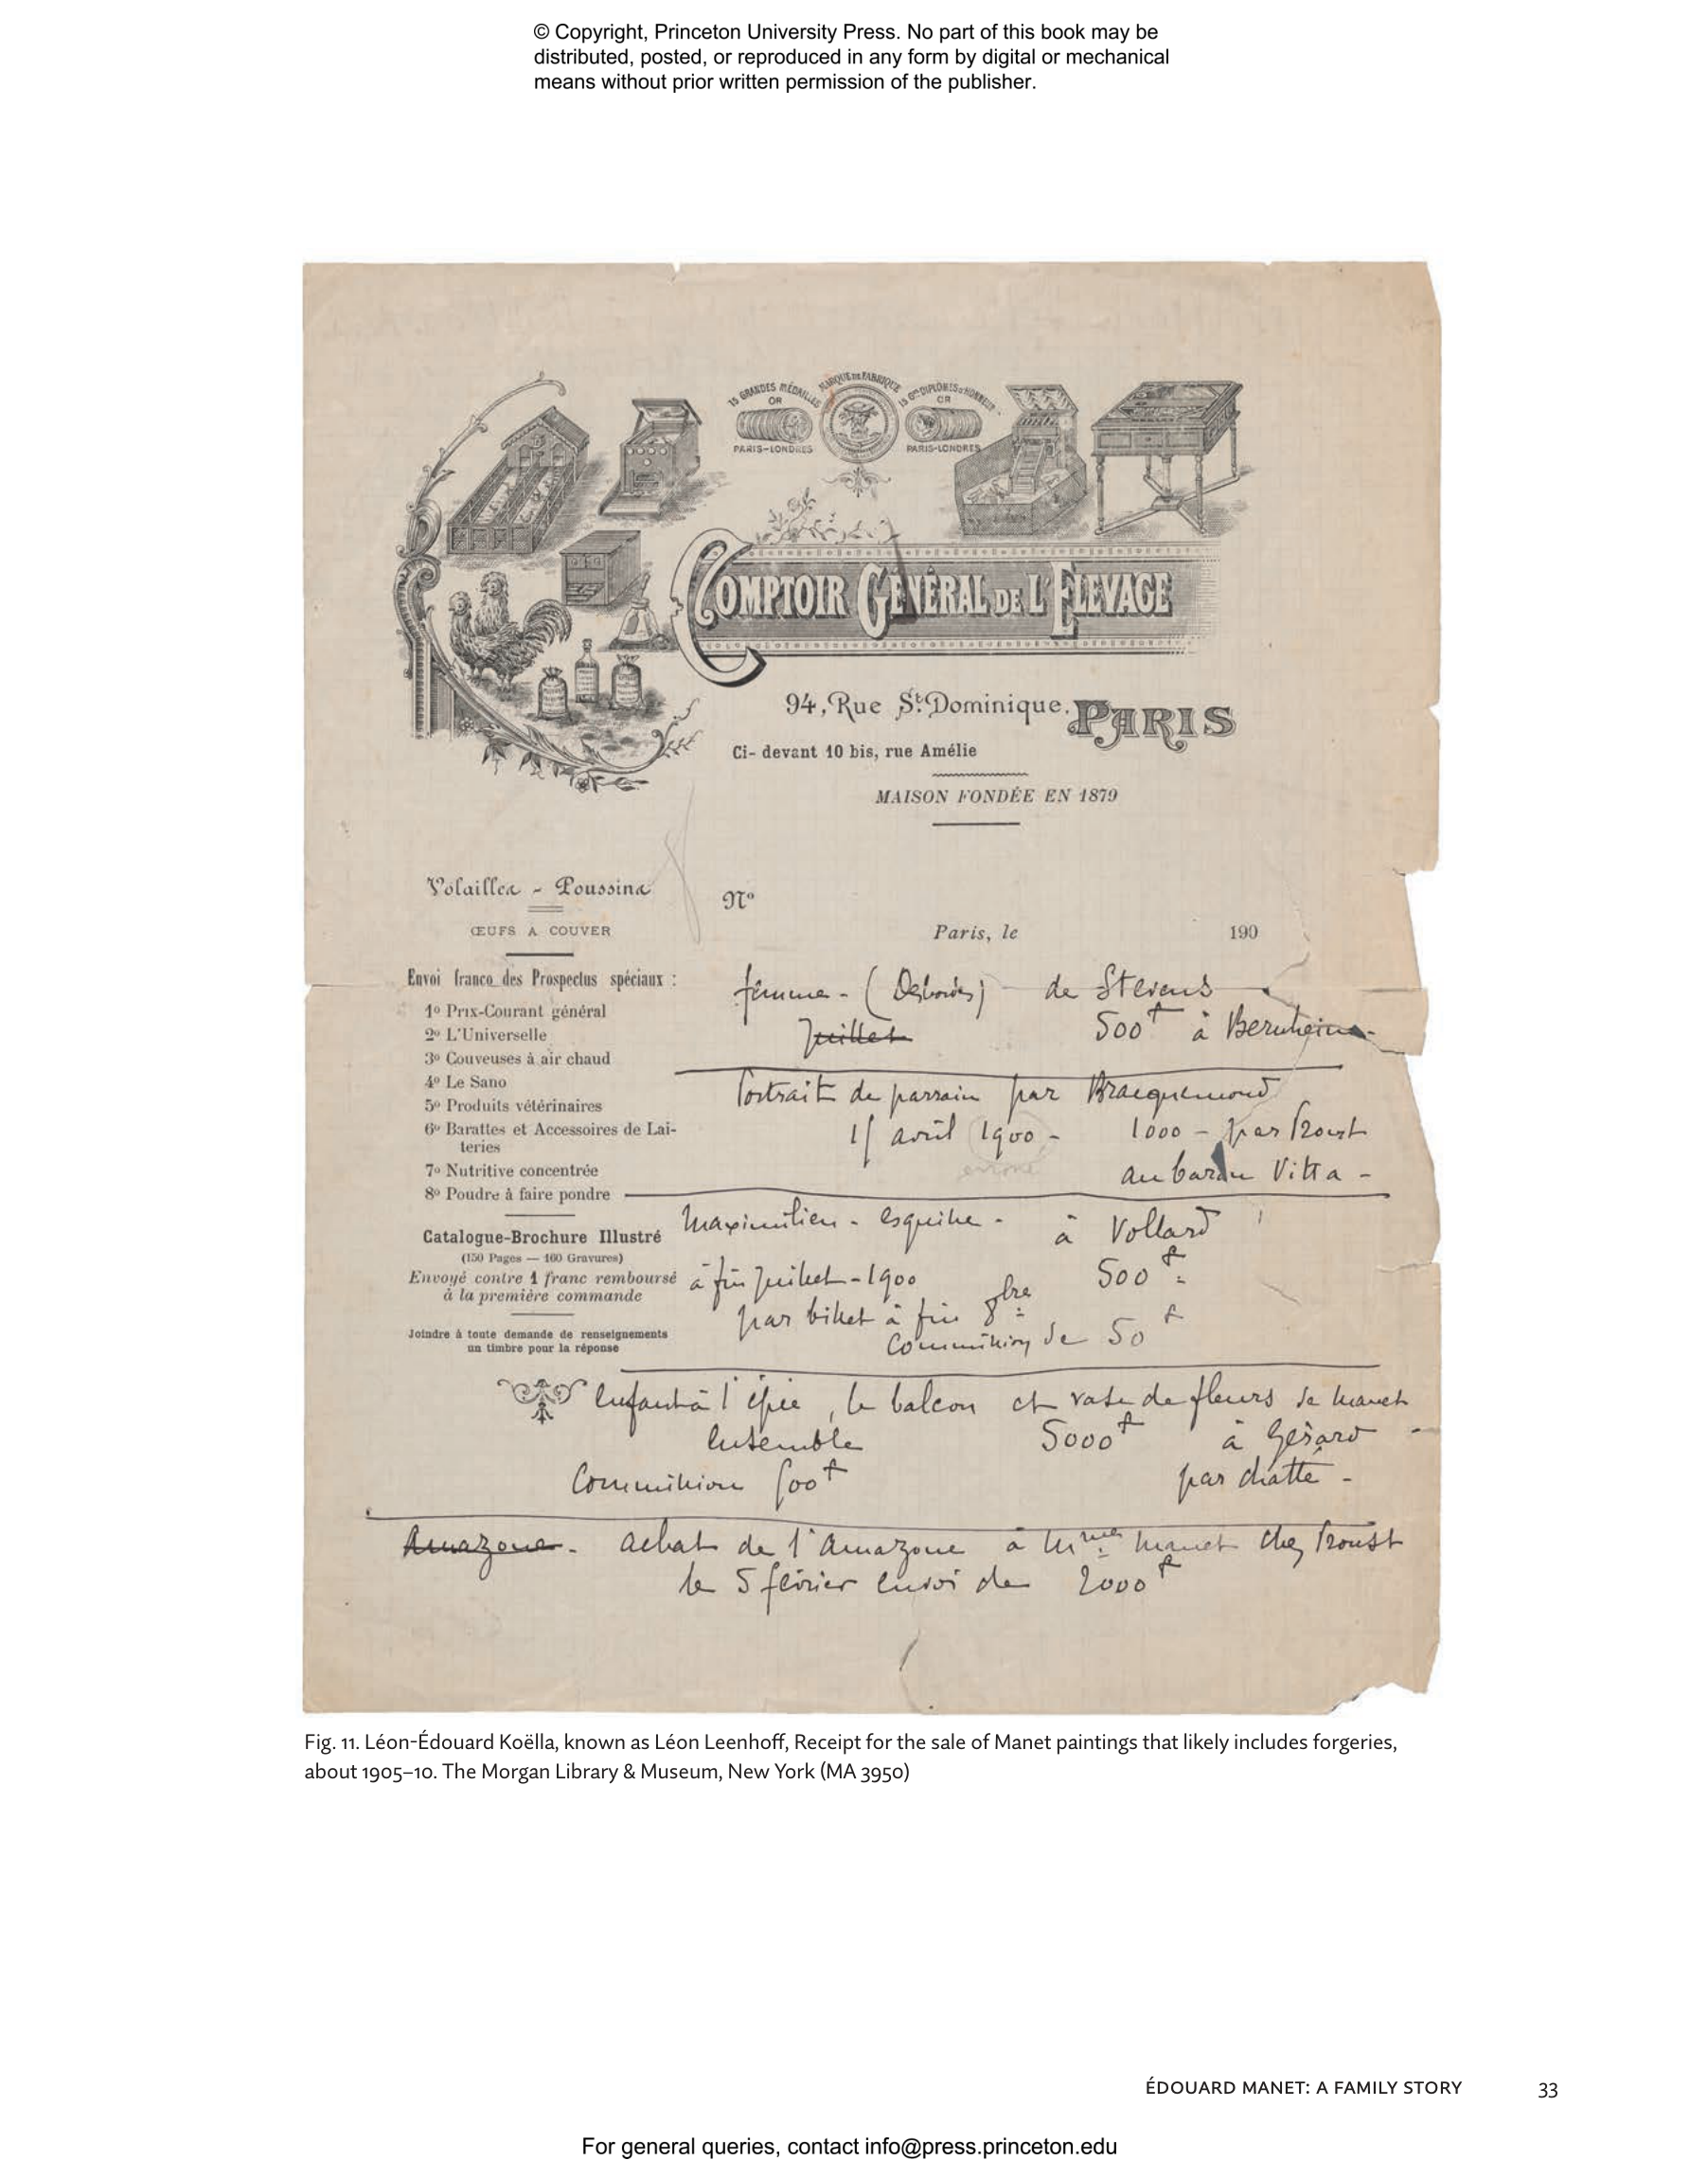 © Copyright, Princeton University Press. No part of this book may be
distributed, posted, or reproduced in any form by digital or mechanical
means without prior written permission of the publisher.
15 GRANDES MÉDAILLES
OR
PARIS-LONDRES
MARQUE DE FABRIQUE
15 Gds DIPLOMES D'HONNEUR
OR
PARIS-LONDRES
COMPTOIR GÉNÉRAL DE L'ELEVAGE
94, Rue St. Dominique. PARIS
Ci-devant 10 bis, rue Amélie
MAISON FONDÉE EN 1879
Volailles - Poussins
ŒUFS A COUVER
Envoi franco des Prospectus spéciaux :
1º Prix-Courant général
2º L'Universelle
3º Couveuses à air chaud
4º Le Sano
5º Produits vétérinaires
6º Barattes et Accessoires de Lai-
teries
7º Nutritive concentrée
8º Poudre à faire pondre
Catalogue-Brochure Illustré
(150 Pages — 160 Gravures)
Envoyé contre 1 franc remboursé
à la première commande
Joindre à toute demande de renseignements
un timbre pour la réponse
Nº
Paris, le 190
femme - (Desbordes) de Stevens
Juillet 500 f à Bernheim -
Portrait de parrain par Bracquemond
1/ avril 1900 - 1000 - par Proust
erroné au baron Vitta -
Maximilien - esquisse - à Vollard
à fin Juillet - 1900 500 f
par billet à fin 8bre
Commission de 50 f
enfant à l'épée, le balcon et vase de fleurs de Manet
ensemble 5000 f à Gérard
Commission 500 f par chatte -
Amazone - achat de l'amazone à Mme Manet chez Proust
le 5 février envoi de 2000 f
Fig. 11. Léon-Édouard Koëlla, known as Léon Leenhoff, Receipt for the sale of Manet paintings that likely includes forgeries,
about 1905–10. The Morgan Library & Museum, New York (MA 3950)
ÉDOUARD MANET: A FAMILY STORY 33
For general queries, contact info@press.princeton.edu